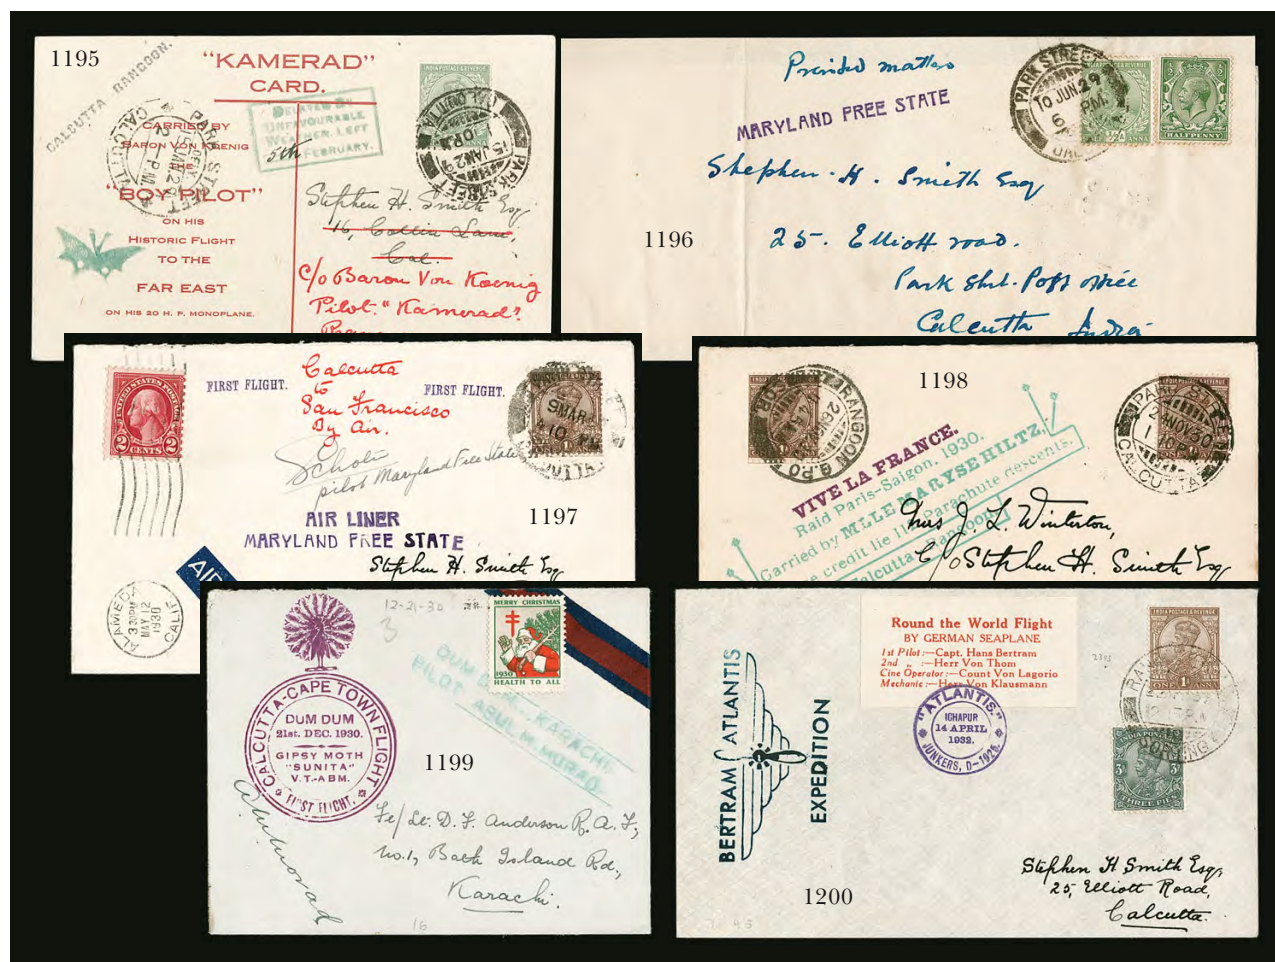 1195
"KAMERAD"
CARD.
CALCUTTA RANGOON.
CARRIED BY
BARON VON KOENIG
THE
"BOY PILOT"
ON HIS
HISTORIC FLIGHT
TO THE
FAR EAST
ON HIS 20 H. P. MONOPLANE.
PARK STREET
CALCUTTA
DELAYED BY
UNFAVOURABLE
WEATHER. LEFT
5th FEBRUARY.
INDIA POSTAGE & REVENUE
PARK STREET
Stephen H. Smith Esq,
16, Collin Lane,
Cal.
c/o Baron Von Koenig
Pilot "Kamerad".
1196
Printed matter
MARYLAND FREE STATE
PARK STREET
10 JUN. 29
6 PM.
HALFPENNY
Stephen. H. Smith Esq
25. Elliott road.
Park Street. Post office
Calcutta India
1197
UNITED STATES POSTAGE
2 CENTS 2
FIRST FLIGHT.
Calcutta
to
San Francisco
By Air.
FIRST FLIGHT.
9 MAR
Scholi
pilot Maryland Free State
AIR LINER
MARYLAND FREE STATE
Stephen H. Smith Esq
AIR
ALAMEDA
330PM
MAY 12
1930
CALIF
1198
RANGOON G.P.O
PARK STREET
24 NOV 30
CALCUTTA
VIVE LA FRANCE.
Raid Paris-Saigon, 1930.
Carried by MLLE MARYSE HILTZ,
credit lie 113 Parachute descents.
Calcutta-Rangoon
Mrs J. L. Winterton,
C/o Stephen H. Smith Esq
1199
12-21-30
3
MERRY CHRISTMAS
1930
HEALTH TO ALL
CALCUTTA-CAPE TOWN FLIGHT
DUM DUM
21st. DEC. 1930.
GIPSY MOTH
"SUNITA"
V.T.-ABM.
FIRST FLIGHT.
DUM DUM - KARACHI
PILOT ABUL M. MURAD
Fe/Lt. D. F. Anderson R.A.F,
No.1, Bath Island Rd.,
Karachi.
16
1200
Round the World Flight
BY GERMAN SEAPLANE
1st Pilot:—Capt. Hans Bertram
2nd „ :—Herr Von Thom
Cine Operator:—Count Von Lagorio
Mechanic:—Herr Von Klausmann
"ATLANTIS"
ICHAPUR
14 APRIL
1932.
JUNKERS, D-1925.
BERTRAM ATLANTIS
EXPEDITION
INDIA POSTAGE & REVENUE
ONE 1A ANNA
INDIA POSTAGE
3P
THREE PIES
Stephen H Smith Esq,
25, Elliott Road,
Calcutta.